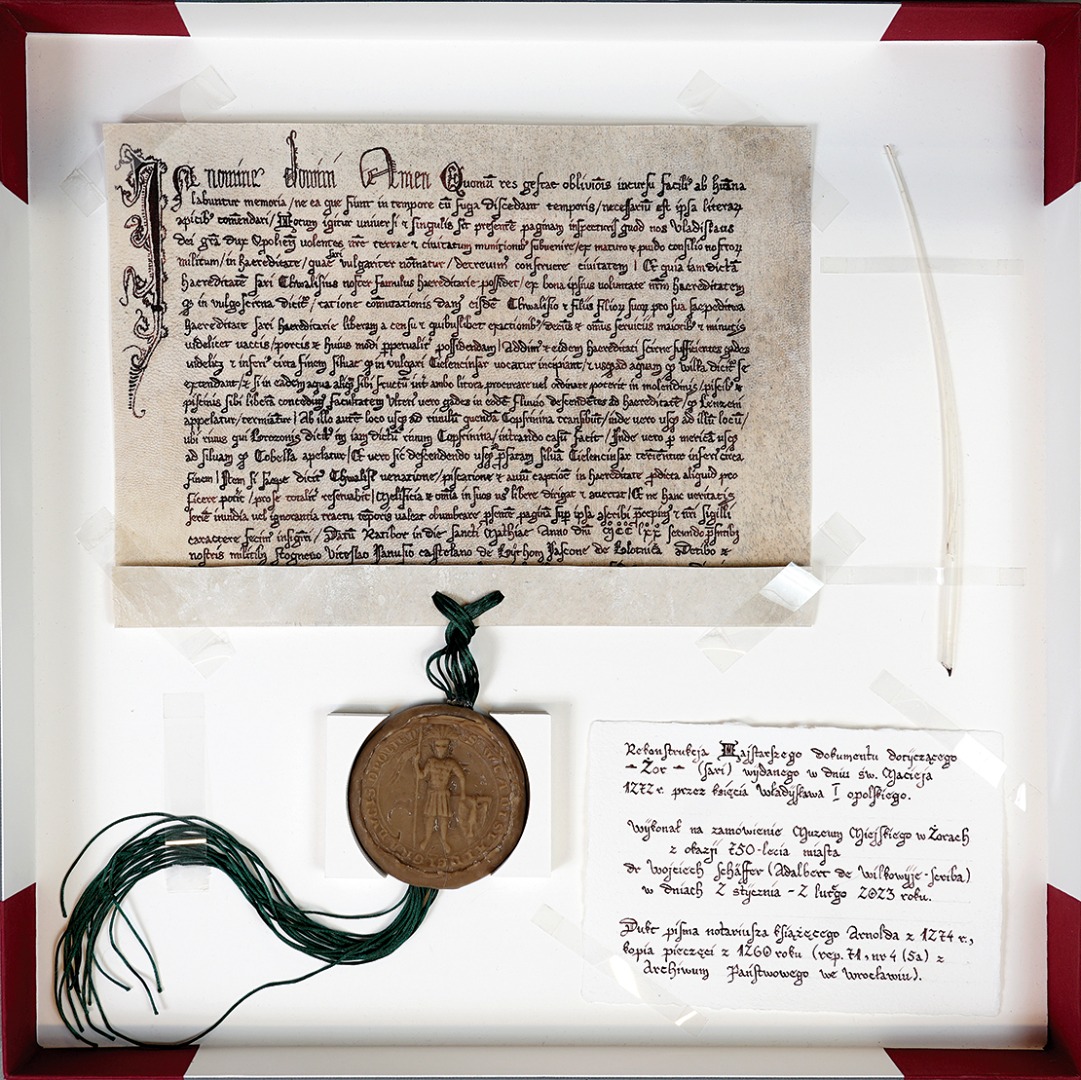 In nomine Domini Amen Quoniā res gestae oblivionis incursu facili ab huāna
labuntur memoria/ne ea que fiunt in tempore cū fuga discedant temporis/necessariū est ipsa literar
apicib comēndari/Notum igitur universi & singulis sit presentē paginam inspecturis quod nos Vladislaus
dei grā dux Opoliēn volentes nr̄e terrae & civitatum munitionib subvenire/ex maturo & pvido consilio nostror
militum/in haereditate/quae sari vulgariter nōinatur/decrevim construere civitatem| Et quia iam dictā
haereditatē sari Chwalisius noster famulus haereditarie possidet/ex bona ipsius voluntate nr̄m haereditatem
in vulgo dicit/ratione cōmutationis dam eisdē Chwalisio & filiis filior suor pro sua saepedicta
haereditate sari haereditarie liberam a censu & quibuslibet exactionib/ & omīs serviciis maiorib & minutis
videlicet vaccis/porcis & huius modi ppetualit possidendam|Addim & eidem haereditati sufficientes gades
videlicz & inferi circa finem silvae in vulgari Cielencinsar vocatur incipiant/& usq ad aquam wilka dicit se
extendant/& si in eadem aqua aliq sibi fructū int ambo litora procurare vel ordinare poterit in molendinis/piscib &
piscinis sibi liberā concedim facultatem vero gades in eodē fluvio descendētes ad haereditatē/ Lenzeni
appelatur/terminātur| Ab illo autē loco usq ad rivulū quendā Copsinina transibūt/inde vero usq ad illū locū/
ubi rivus qui Brozonis dicit in iam dictū rivum Copsinina/intrando casū facit/ Inde vero p usq
ad silvam Cobella apelatur|Et vero sic descendendo usq psatam silvā Cielencinsar inferi circa
finem|Item si saepe dict Chwalis venatione/piscatione & aviū captiōe in haereditate pdicta aliquid pro
ficere potit /pro se totalit reservabit|Mellificia & omīa in suos us libere dirigat & avertat|Et ne hanc veritatis
seriē invidia vel ignorantia tractu tēporis valeat obumbrare psentē paginā sup ipsa ascribi pcepim & nr̄i sigilli
caractere fecim insigniri/ Datū Ratibor in die sancti Mathiae Anno dni secundo psentib
nostris militib Stognevo Viteslao Janusio castelano de Bythom Jascone de Detibo &
Rekonstrukcja Najstarszego dokumentu dotyczącego
- Żor - (Sari) wydanego w dniu św. Macieja
1272 r. przez księcia Władysława I opolskiego.
Wykonał na zamówienie Muzeum Miejskiego w Żorach
z okazji 750-lecia miasta
dr Wojciech Schäffer (Adalbert de Wilkowyje-scriba)
w dniach 2 stycznia - 2 lutego 2023 roku.
Dukt pisma notariusza książęcego Arnolda z 1274 r.,
kopia pieczęci z 1260 roku (rep. 71, nr 4 (5a) z
Archiwum Państwowego we Wrocławiu).